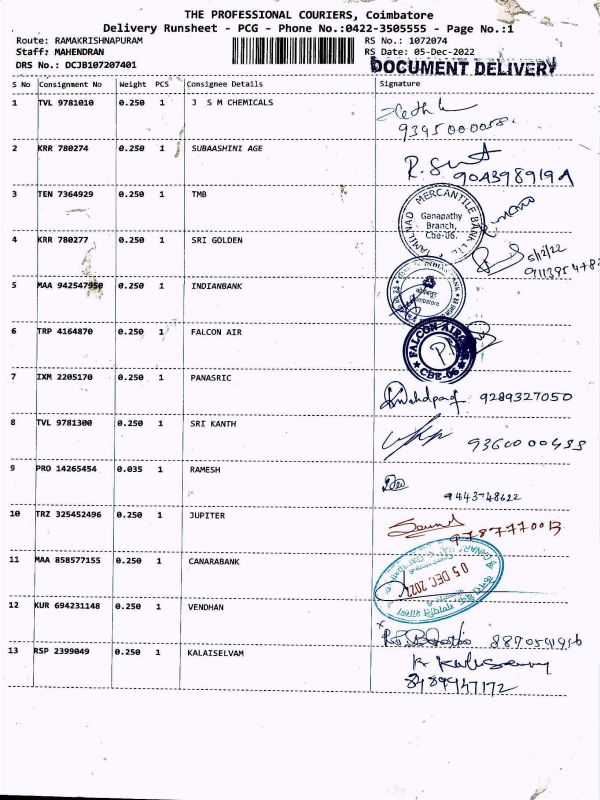 THE PROFESSIONAL COURIERS, Coimbatore
Delivery Runsheet - PCG - Phone No.:0422-3505555 - Page No.:1
Route: RAMAKRISHNAPURAM RS No.: 1072074
Staff: MAHENDRAN RS Date: 05-Dec-2022
DRS No.: DCJB107207401 DOCUMENT DELIVERY
S No Consignment No Weight PCS Consignee Details Signature
1 TVL 9781010 0.250 1 J S M CHEMICALS
2 KRR 780274 0.250 1 SUBAASHINI AGE
3 TEN 7364929 0.250 1 TMB
TAMILNAD MERCANTILE BANK LTD
Ganapathy
Branch,
Cbe-06.
4 KRR 780277 0.250 1 SRI GOLDEN
5/12/22
5 MAA 942547950 0.250 1 INDIANBANK
6 TRP 4164870 0.250 1 FALCON AIR
FALCON AIR
CBE-06
7 IXM 2205170 0.250 1 PANASRIC
9289327050
8 TVL 9781300 0.250 1 SRI KANTH
9 PRO 14265454 0.035 1 RAMESH
9443748622
10 TRZ 325452496 0.250 1 JUPITER
11 MAA 858577155 0.250 1 CANARABANK
05 DEC 2022
12 KUR 694231148 0.250 1 VENDHAN
13 RSP 2399049 0.250 1 KALAISELVAM
8489947172